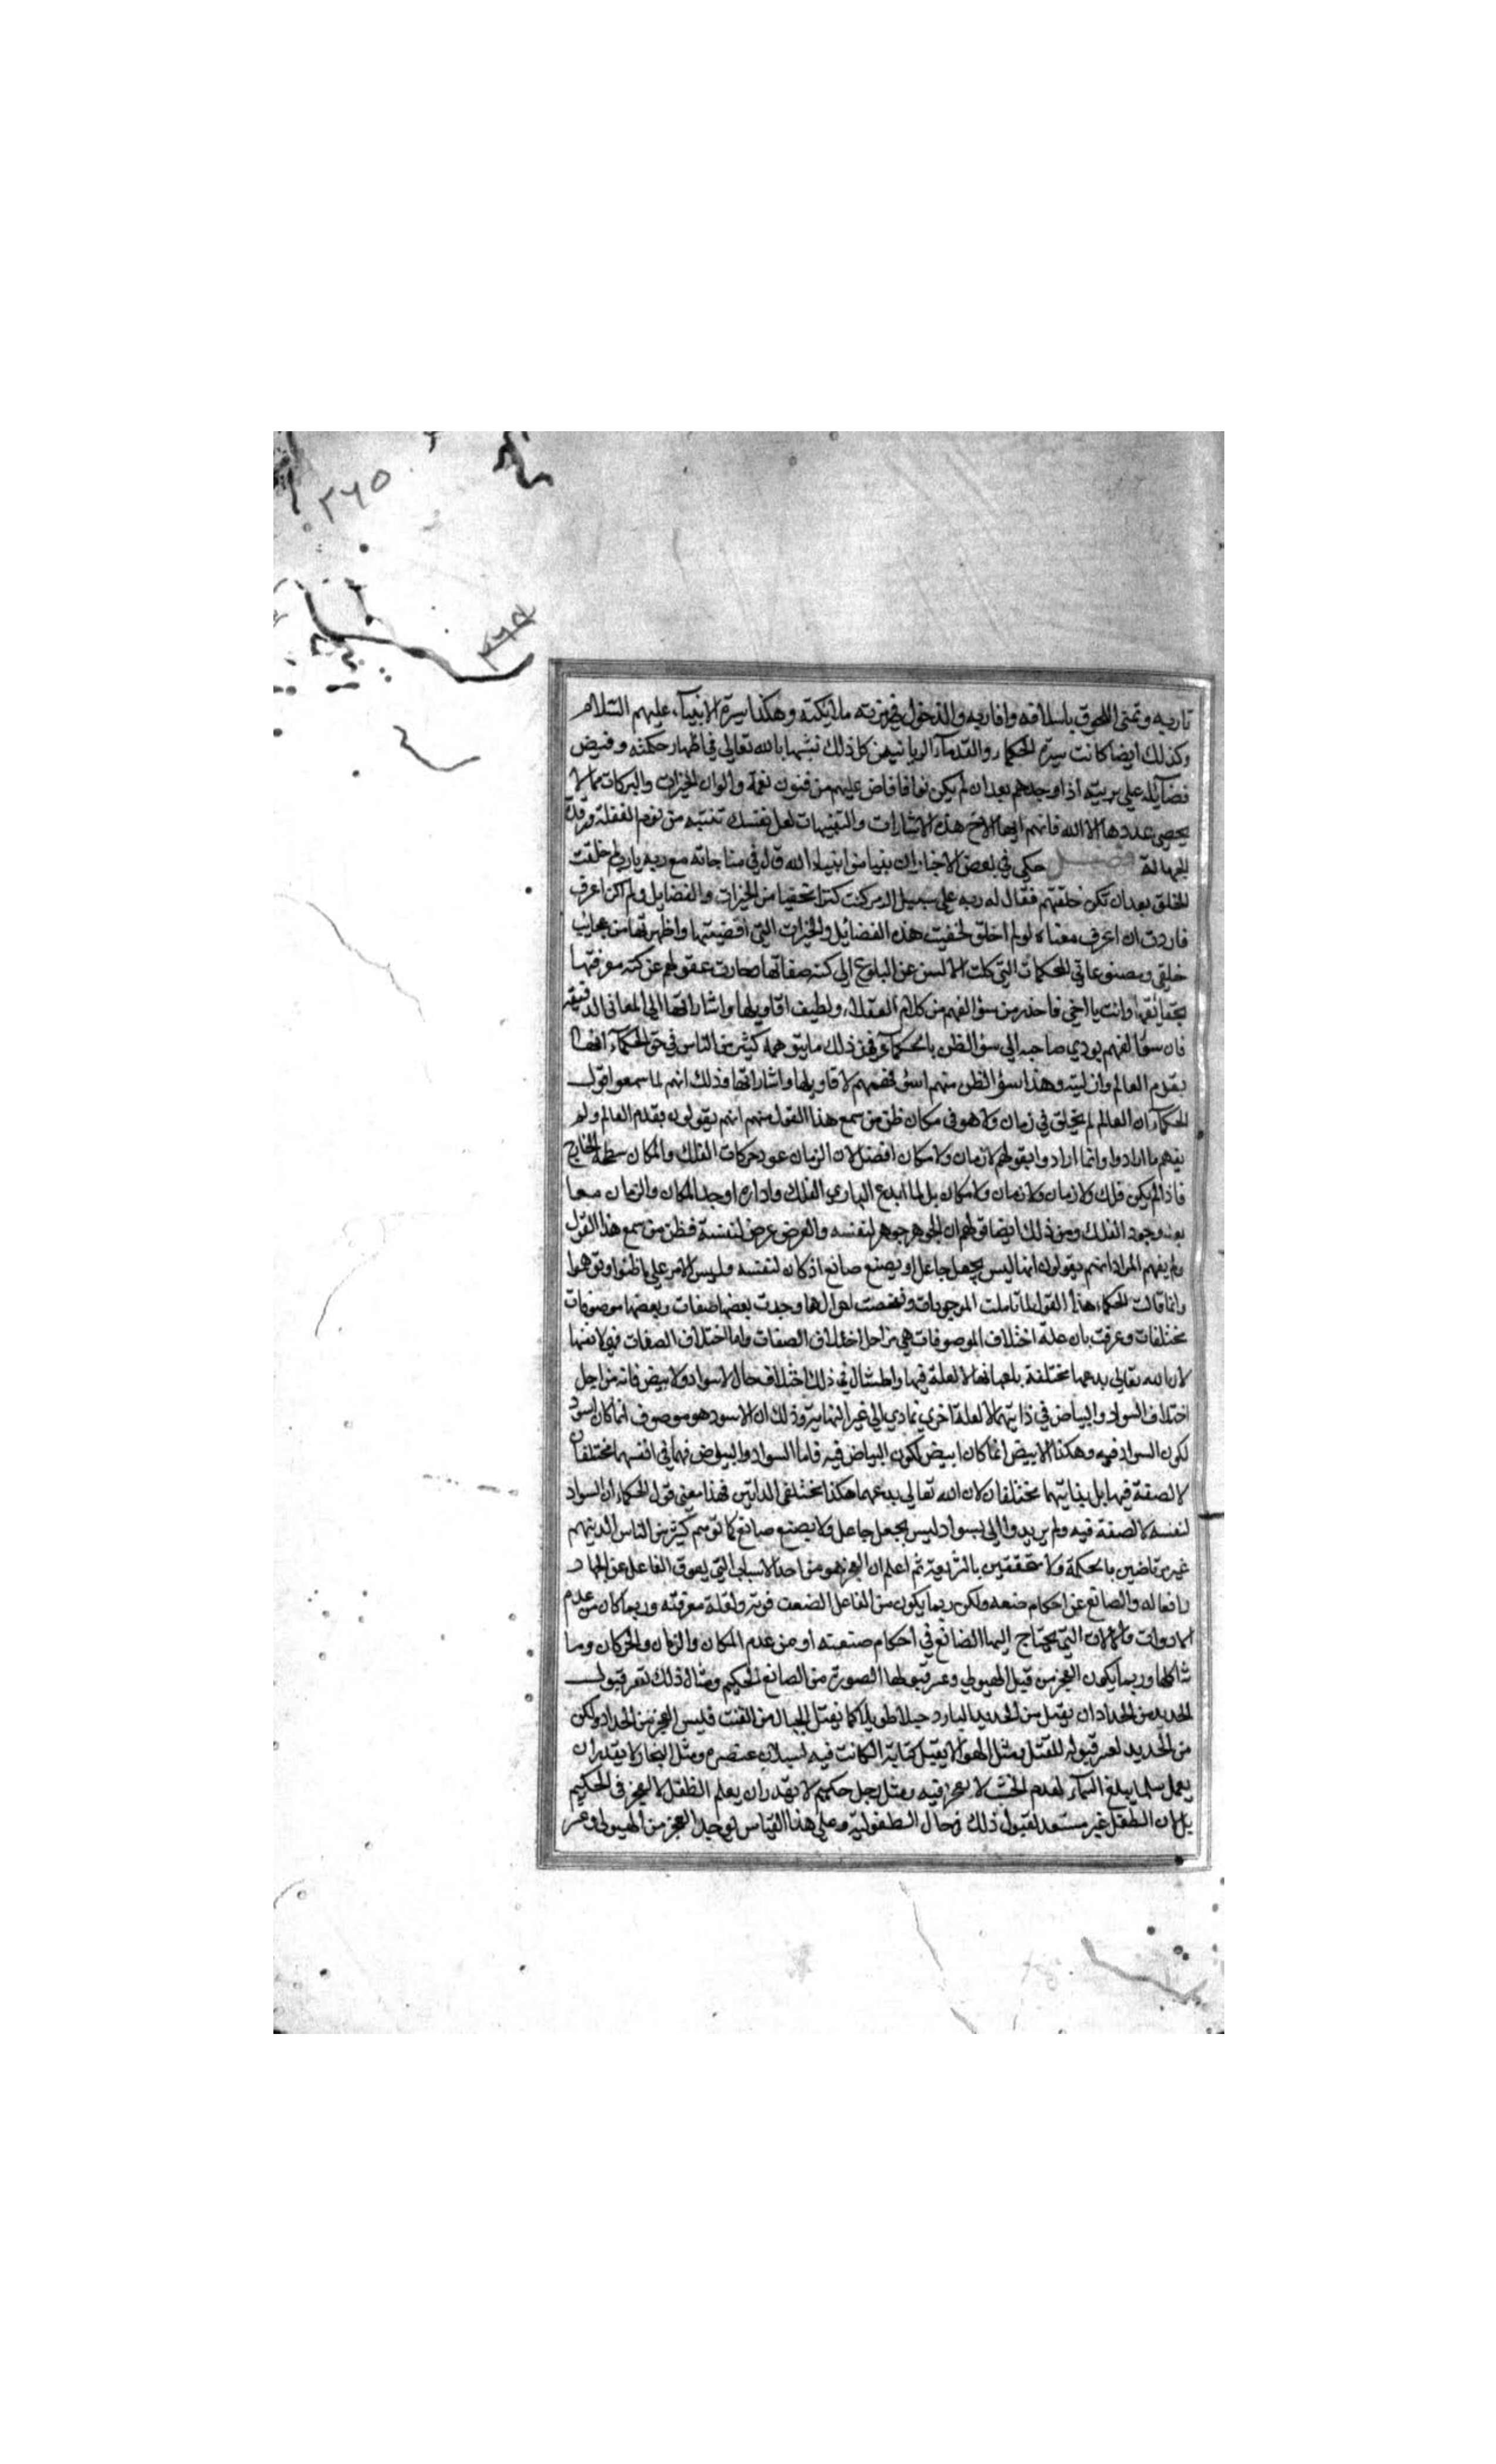 ٢٦٥
٢٦٥
تاربه وتمنى اللحوق باسلافه واقاربه والدخول في زمرته ملايكته وهكذا سيرة الانبيآء عليهم السّلام
وكذلك ايضا كانت سيرة الحكماء والقدمآء الربانيين كل ذلك تشبها بالله تعالى في اظهار حكمته وفيض
فضآيله على بريته اذ اوجدهم بعد ان لم يكن نوا فافاض عليهم من فنون نعمه والوان الخيرات والبركات مما لا
يحصى عددها الا الله فانهم ايها الاخ هذه الاشارات والتنبيهات لعل نفسك تنتبه من نوم الغفلة ورقدة
الجهالة فصل حكى في بعض الاخبار ان نبيا من انبياء الله قال في مناجاته مع ربه يا رب لم خلقت
الخلق بعد ان تكن خلقتهم فقال له ربه على سبيل الرمز كنت كنزا مخفيا من الخيرات والفضايل ولم اكن اعرف
فاردت ان اعرف معناه لو لم اخلق لخفيت هذه الفضائل والخيرات التي افضيتها واظهرتها من عجائب
خلقي ومصنوعاتي المحكمات التي كلت الالسن عن البلوغ الى كنه صفاتها وحارت عقولهم عن كنه معرفتها
بحقائقها وانت يا اخي فاحذر من سؤ الفهم من كلام العقلاء ولطيف اقاويلها واشاراتها الى المعاني الدقيقة
فان سؤ الفهم يودي صاحبه الى سؤ الظن بالحكمآء فمن ذلك ما يتوهمه كثير من الناس في حق الحكمآء انها
بقدم العالم وازليته وهذا سؤ الظن منهم لسؤ فهمهم لاقاويلها واشاراتها وذلك انهم لما سمعوا قول
الحكمآء ان العالم لم يخلق في زمان ولا هو في مكان ظن من سمع هذا القول منهم انهم يقولون بقدم العالم ولم
يفهم ما ارادوا وانما ارادوا بقولهم لا زمان ولا مكان افضل لان الزمان عدد حركات الفلك والمكان سطحه الخارج
فاذا لم يكن فلك ولا زمان ولا زمان ولا مكان بل لما ابدع الباري الفلك واداره اوجد المكان والزمان معا
بعد وجود الفلك ومن ذلك ايضا قولهم ان الجوهر جوهر لنفسه والعرض عرض لنفسه فظن من سمع هذا القول
ولم يفهم المراد انهم يقولون انها ليس بجعل جاعل او بصنع صانع اذ كان لنفسه وليس الامر على ما ظنوا وتوهموا
وانما قالت الحكماء هذا القول لما تاملت الموجودات وتفحصت احوالها وجدت بعضها صفات وبعضها موصوفات
مختلفات وعرفت بان علة اختلاف الموصوفات هي من اجل اختلاف الصفات واما اختلاف الصفات فهي لانفسها
لان الله تعالى بدعها مختلفة باعيانها لا لعلة فيها والمثال في ذلك اختلاف حال الاسواد والابيض فانه من اجل
اختلاف السواد والبياض في ذاتيهما لا لعلة اخرى تمادي الى غير النهاية وذلك ان الاسود هو موصوف انما كان اسود
لكون السواد فيه وهكذا الابيض انما كان ابيض لكون البياض فيه فاما السواد والبياض فهما في انفسهما مختلفان
لا لصفة فيهما بل بذاتيهما مختلفان لان الله تعالى بدعهما هكذا مختلفي الذاتين فهذا معنى قول الحكماء ان السواد
لنفسه لا لصفة فيه ولم يريدوا الى السواد ليس بجعل جاعل ولا بصنع صانع كما توهم كثير من الناس الذينهم
غير مرتاضين بالحكمة ولا متحققين بالشريعة ثم اعلم ان العجز هو من احد الاسباب التي يعوق الفاعل عن
افعاله والصانع عن احكام صنعه ولكن ربما يكون من الفاعل لضعف قوته ولقلة معرفته وربما كان من عدم
الادوات والالات التي يحتاج اليها الصانع في احكام صنعته او من عدم المكان والزمان والحركان وما
شاكلها وربما يكون العجز من قبل الهيولى وعسر قبولها الصورة من الصانع الحكيم ومثال ذلك تعسر قبول
الحديد من الحداد ان يفتل من الحديد البارد حبلا طويلا كما يفتل الحبال من القنب فليس العجز من الحداد ولكن
من الحديد لعسر قبوله للفتل ومثل الهواء لا يقبل كتابة الكاتب فيه لسيلان عنصره ومثل النجار لا يقدر ان
يعمل سلما يبلغ السمآء لعدم الخشب لا عجز فيه ومثل رجل حكيم لا يقدر ان يعلم الطفل لا لعجز في الحكيم
بل لان الطفل غير مستعد لقبول ذلك في حال الطفولية وعلى هذا القياس يوجد العجز من الهيولى وعسر